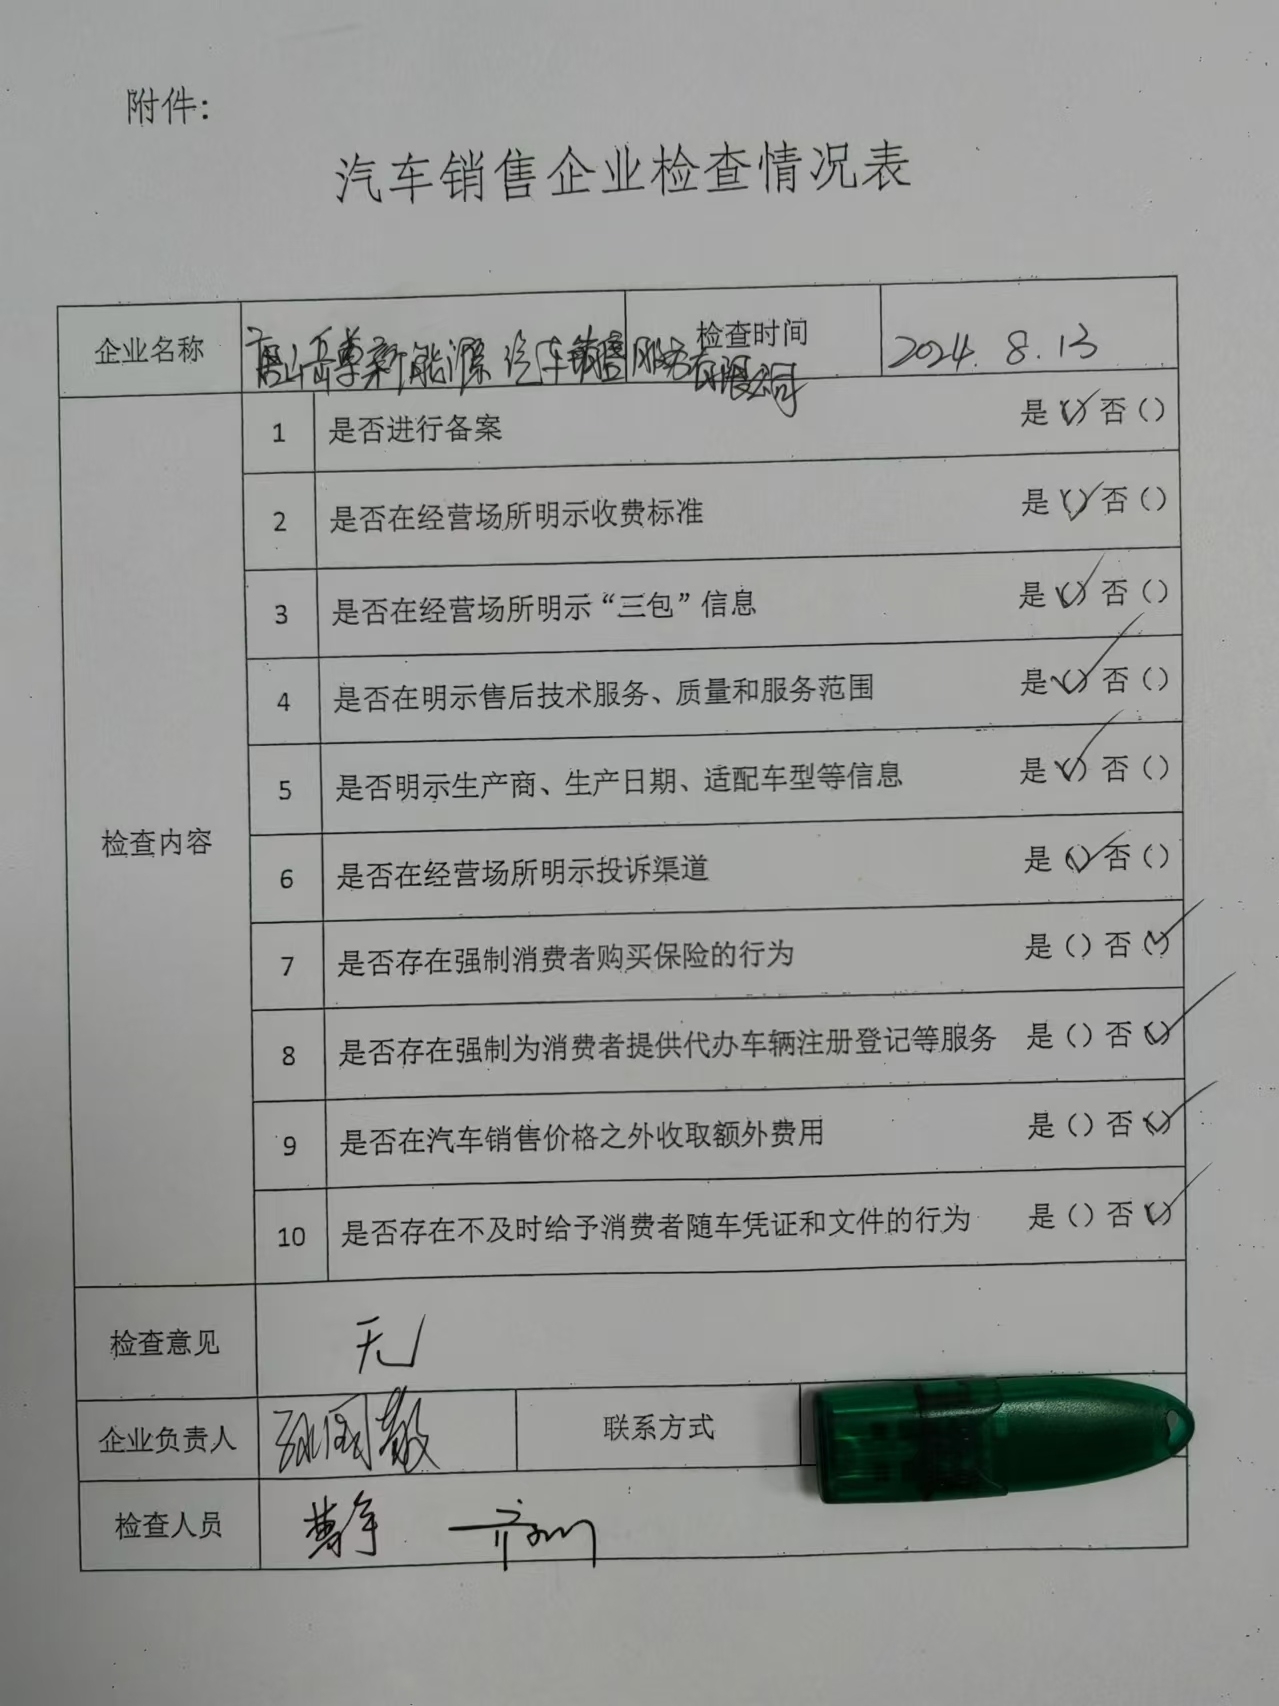 附件:
汽车销售企业检查情况表
企业名称 唐山岳尊新能源汽车销售服务有限公司 检查时间 2024.8.13
检查内容
1 是否进行备案 是(✓) 否()
2 是否在经营场所明示收费标准 是(✓) 否()
3 是否在经营场所明示“三包”信息 是(✓) 否()
4 是否在明示售后技术服务、质量和服务范围 是(✓) 否()
5 是否明示生产商、生产日期、适配车型等信息 是(✓) 否()
6 是否在经营场所明示投诉渠道 是(✓) 否()
7 是否存在强制消费者购买保险的行为 是() 否(✓)
8 是否存在强制为消费者提供代办车辆注册登记等服务 是() 否(✓)
9 是否在汽车销售价格之外收取额外费用 是() 否(✓)
10 是否存在不及时给予消费者随车凭证和文件的行为 是() 否(✓)
检查意见 无
企业负责人 联系方式
检查人员